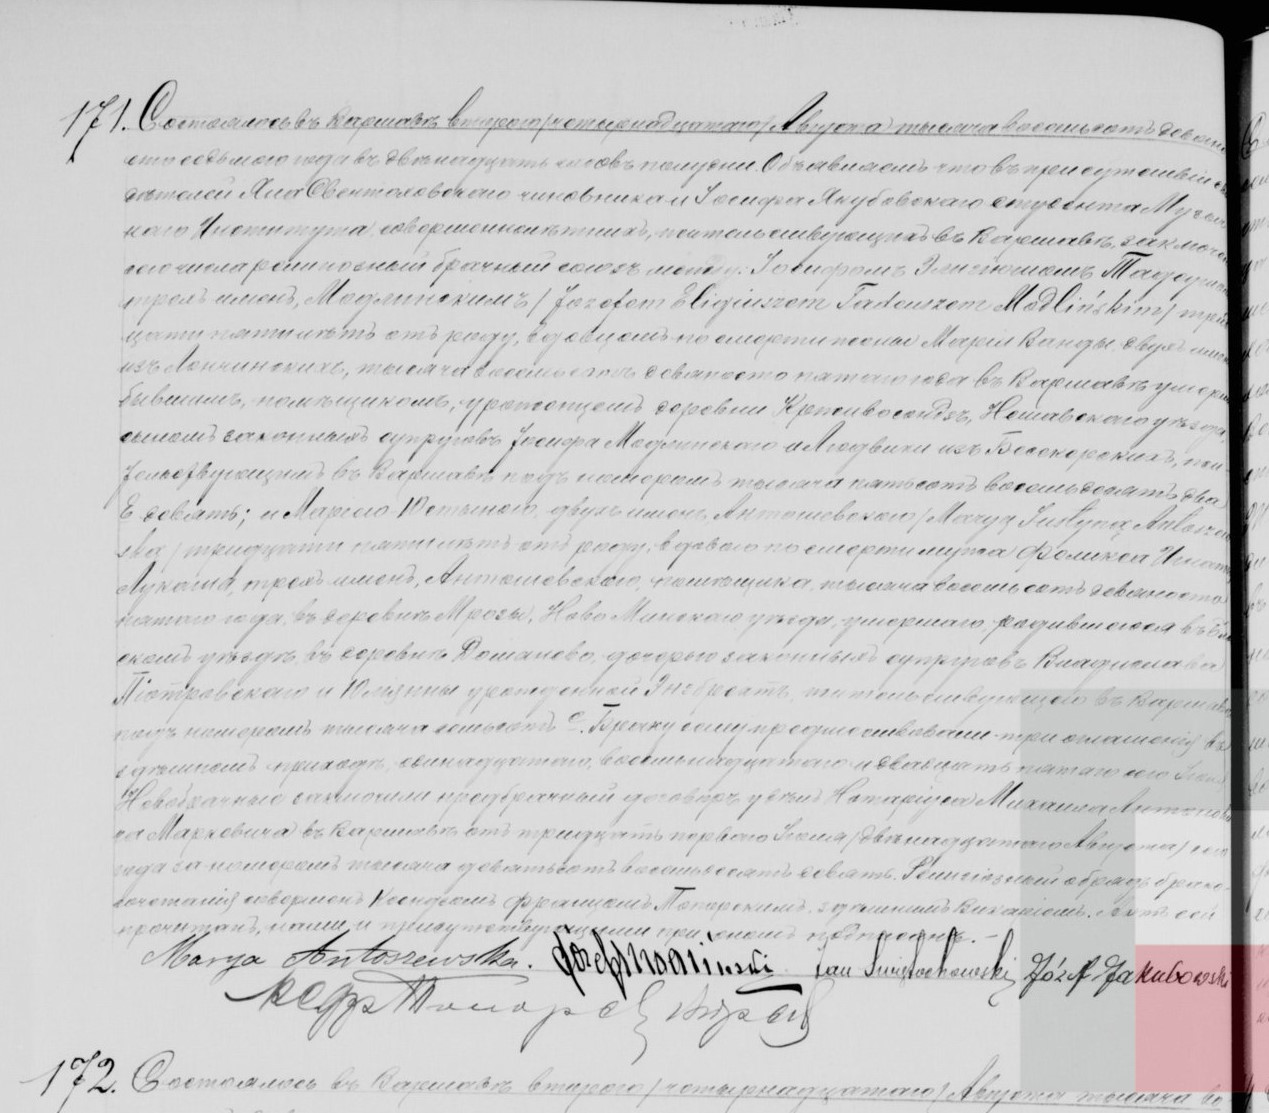 171. Состоялось въ Варшавѣ втораго /четырнадцатаго/ Августа тысяча восемьсотъ девяно
сто седьмого года въ двѣнадцать часовъ полудни. Объявляемъ что въ присутствіи сви
дѣтелей Яна Свентоховскаго чиновника и Іосифа Якубовскаго студента Музыкаль
наго Института, совершеннолѣтнихъ, жительствующихъ въ Варшавѣ, заключенъ
сего числа религіозный брачный союзъ между: Іосифомъ Элигіюшомъ Тадеушомъ
трехъ именъ, Модлинскимъ / Józefem Eligiuszem Tadeuszem Modlińskim / трид
цати пяти лѣтъ отъ роду, вдовцомъ по смерти послы Маріи Ванды двухъ именъ
изъ Лончинскихъ, тысяча восемьсотъ девяносто пятаго года въ Варшавѣ умершей
бывшимъ помѣщикомъ, урожденцемъ деревни Крживосондзъ, Нешавскаго уѣзда,
сыномъ законныхъ супруговъ Іосифа Модлинскаго и Людвики изъ Бесекерскихъ, жи-
тельствующимъ въ Варшавѣ подъ номеромъ тысяча пятьсотъ восемьдесятъ два
Е девять; и Маріею Юстыною, двухъ именъ, Антошевскою / Maryą Justyną Antoszew
ską / тридцати пяти лѣтъ отъ роду, вдовою по смерти мужа Феликса
Лукаша, трехъ именъ, Антошевскаго, помѣщика, тысяча восемьсотъ девяносто
пятаго года, въ деревнѣ Мрозы, Ново Минскаго уѣзда, умершаго, родившеюся въ
скомъ уѣздѣ, въ деревнѣ Доманово, дочерью законныхъ супруговъ Владислава
Піотровскаго и Юліанны урожденной жительствующею въ Варшавѣ
подъ номеромъ тысяча семьсотъ е. Браку сему предшествовали три оглашенія въ
здѣшномъ приходѣ, одинадцатаго, восемьнадцатаго и двадцать пятаго сего Іюля
Новобрачные заключили предбрачный договоръ у Нотаріуса Михаила Антонови
ча Марковича въ Варшавѣ отъ тридцать перваго Іюля /двѣнадцатаго Августа/ сего
года за номеромъ тысяча девятьсотъ восемьдесятъ девять. Религіозный обрядъ брако-
сочетанія совершенъ Ксендзомъ Францомъ Топорскимъ здѣшнимъ Викаріемъ. Актъ сей
прочитанъ, нами и присутствующими при ономъ подписанъ. —
Marya Antoszewska. Józef Modliński Jan Świętochowski Józef Jakubowski
172. Состоялось въ Варшавѣ втораго /четырнадцатаго/ Августа тысяча во